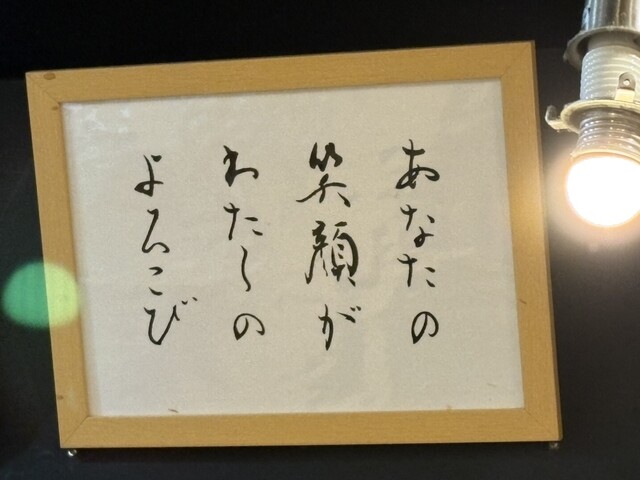 あなたの
笑顔が
わたしの
よろこび